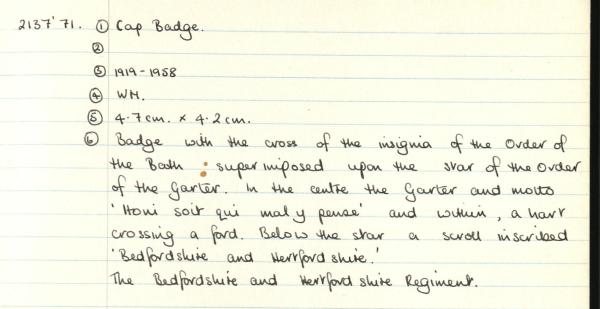 2137'71. ① Cap Badge.
②
③ 1919-1958
④ WM.
⑤ 4.7cm. x 4.2cm.
⑥ Badge with the cross of the insignia of the Order of
the Bath : superimposed upon the star of the Order
of the Garter. In the centre the Garter and motto
'Honi soit qui mal y pense' and within, a hart
crossing a ford. Below the star a scroll inscribed
'Bedfordshire and Hertfordshire.'
The Bedfordshire and Hertfordshire Regiment.